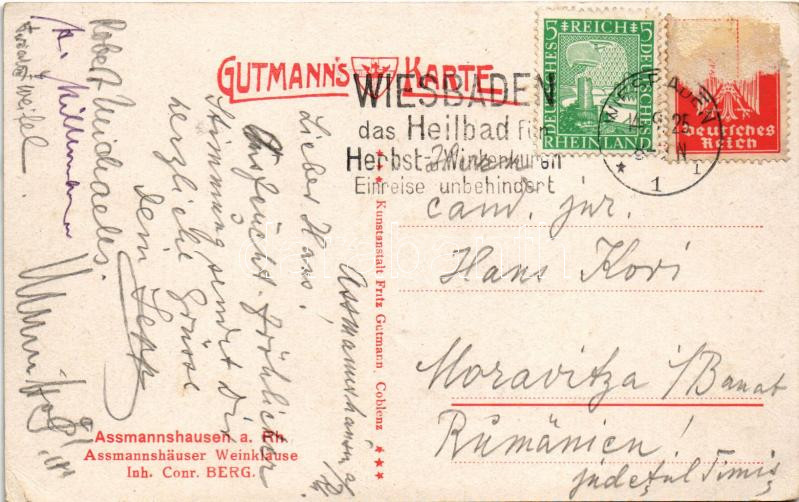 GUTMANN'S KARTE
WIESBADEN
das Heilbad für
Herbst-Winterkuren
Einreise unbehindert
WIESBADEN
25
1
5 REICH 5
DEUTSCHES
DEUTSCHES
RHEINLAND
Deutsches
Reich
Herrn
cand. jur.
Hans Kori
Moravitza i/Banat
Rumänien!
județul Timiș
Kunstanstalt Fritz Gutmann, Coblenz
Assmannshausen a/Rh.
Lieber Hans!
In feucht-fröhlicher
Stimmung sendet Dir
herzliche Grüsse
Dein Sepp
Robert Michaelis.
Assmannshausen a. Rh.
Assmannshäuser Weinklause
Inh. Conr. BERG.